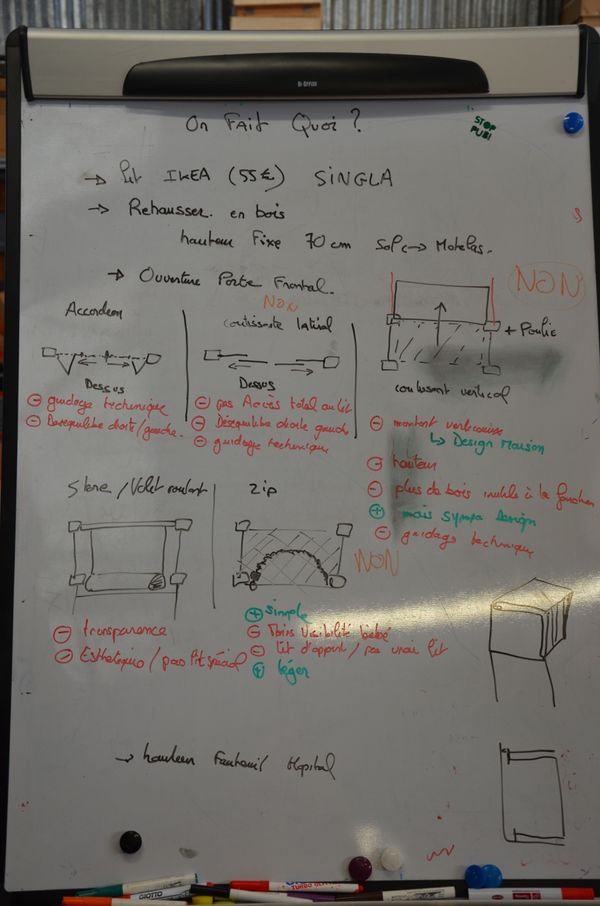 Bi-Office
On Fait Quoi ?
STOP
PUB!
→ Lit IKEA (55€) SINGLA
→ Rehausser en bois
hauteur Fixe 70 cm Sol → Matelas.
→ Ouverture Porte Frontal.
NON
NON
Accordeon
coulissante latéral
+ Poulie
Dessus
Dessus
coulissant vertical
⊖ guidage technique
⊖ Desequilibre droite/gauche.
⊖ pas Accès total au lit
⊖ Déséquilibre droite gauche
⊖ guidage technique
⊖ montant verticaux
↳ Design Maison
⊖ hauteur
⊖ plus de bois inutile à la fonction
⊕ mais sympa Design
⊖ guidage technique
Store / Volet roulant
Zip
NON
⊖ transparence
⊖ Esthetique / pas lit spécial
⊕ simple
⊖ Mois visibilité bébé
⊖ lit d'appoint / pas vrai lit
⊕ léger
→ hauteur Fauteuil Hopital
GIOTTO
TURBO